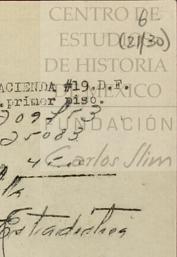 CENTRO DE
ESTUD
DE HISTORIA
MÉXICO
FUNDACIÓN
Carlos Slim
6
(21/30)
ACIENDA #19.D.F.
.primer piso.
25083
Estadistica